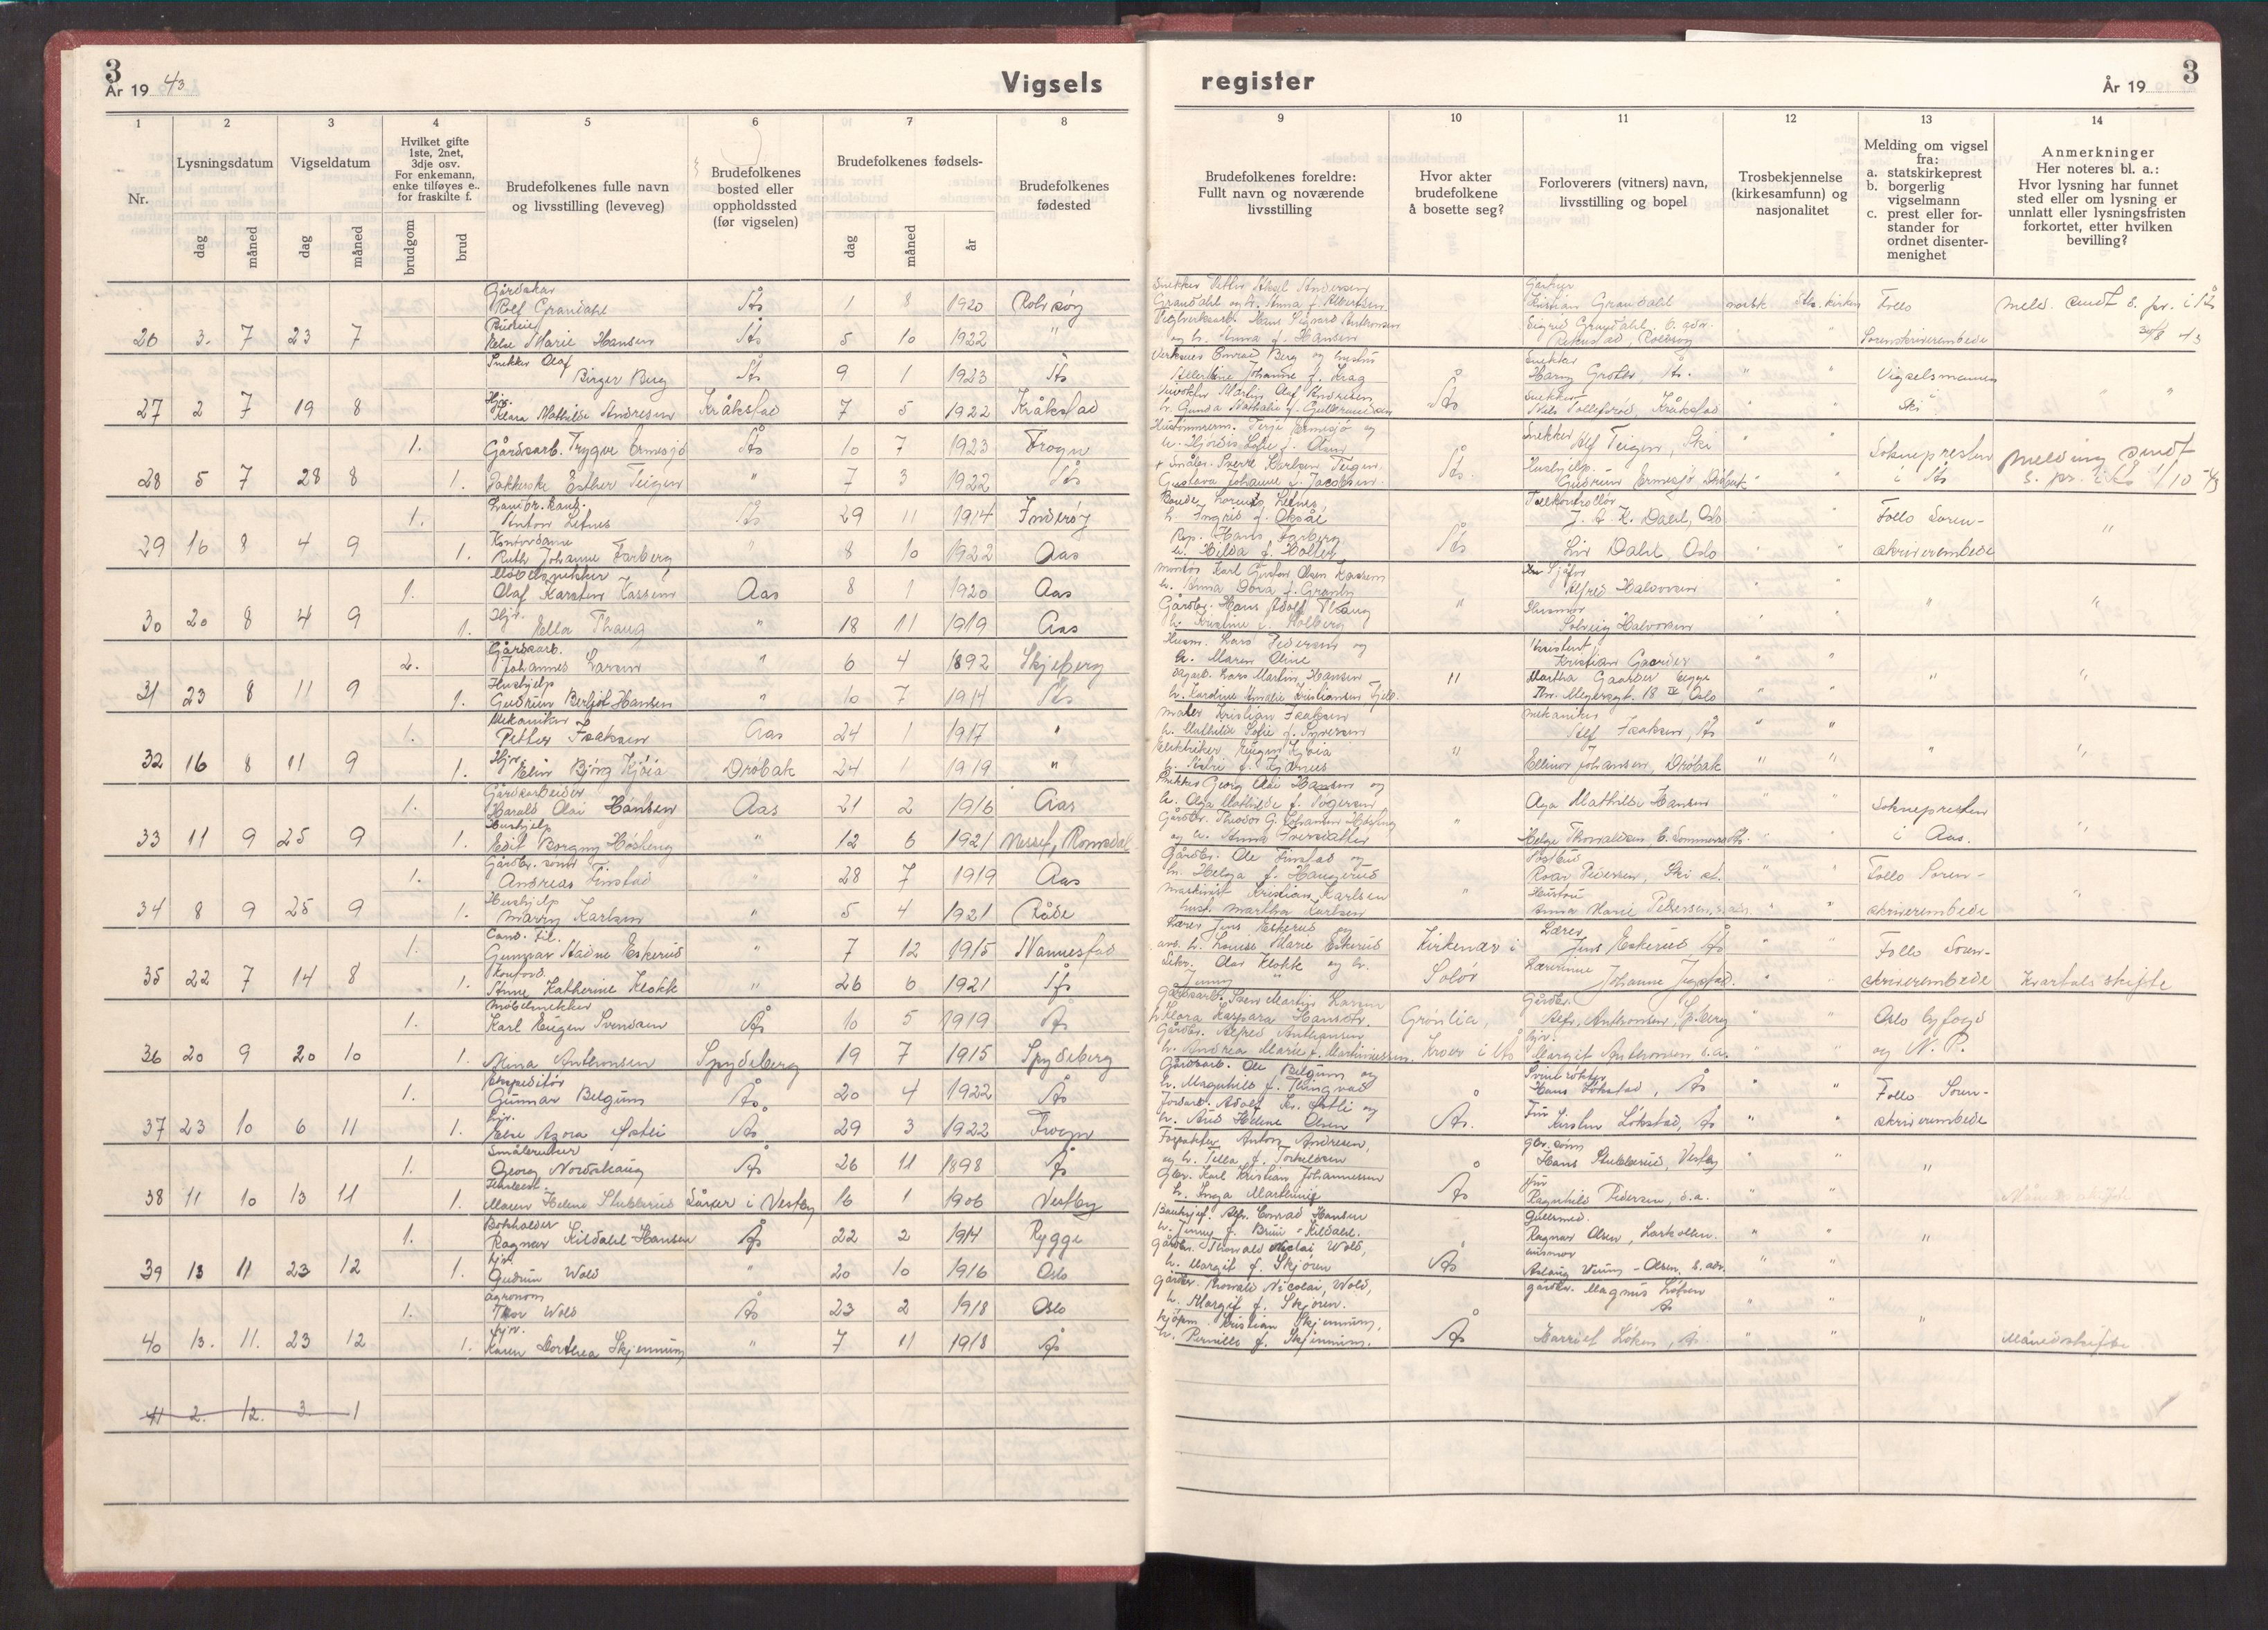 3
År 19 43
Vigsels
register
År 19
3
1
2
3
4
5
6
7
8
9
10
11
12
13
14
Nr.
Lysningsdatum
Vigseldatum
Hvilket gifte
1ste, 2net,
3dje osv.
For enkemann,
enke tilføyes e..
for fraskilte f.
Brudefolkenes fulle navn
og livsstilling (leveveg)
Brudefolkenes
bosted eller
oppholdssted
(før vigselen)
Brudefolkenes fødsels-
Brudefolkenes
fødested
dag
måned
dag
måned
brudgom
brud
dag
måned
år
Brudefolkenes foreldre:
Fullt navn og noværende
livsstilling
Hvor akter
brudefolkene
å bosette seg?
Forloverers (vitners) navn,
livsstilling og bopel
Trosbekjennelse
(kirkesamfunn) og
nasjonalitet
Melding om vigsel
fra:
a. statskirkeprest
b. borgerlig
vigselmann
c. prest eller for-
stander for
ordnet disenter-
menighet
Anmerkninger
Her noteres bl. a.:
Hvor lysning har funnet
sted eller om lysning er
unnlatt eller lysningsfristen
forkortet, etter hvilken
bevilling?
Gårdskar
Rolf Grandahl Ås 1 8 1920 Rolvsøy
26 3. 7 23 7
Else Marie Hansen Ås 5 10 1922 "
Snekker Olaf
Birger Berg Ås 9 1 1923 Ås
Hjv.
27 2 7 19 8 Klara Mathilde Andresen Kråkstad 7 5 1922 Kråkstad
1. Gårdsarb. Trygve Ermesjø Ås 10 7 1923 Frogn
28 5 7 28 8 1. Esther Teigen " 7 3 1922 Ås
1. Anton Letnes Ås 29 11 1914 Inderøy
Kontordame
29 16 8 4 9 1. Ruth Johanne Farberg " 8 10 1922 Aas
Møbelsnekker
1. Olaf Karsten Kassem Aas 8 1 1920 Aas
Hjv.
30 20 8 4 9 1. Ella Thaug " 18 11 1919 Aas
Gårdsarb.
2. Johannes Larsen " 6 4 1892 Skjeberg
Hushjelp
31 23 8 11 9 1. Gudrun Berljot Hansen " 10 7 1914 Ås
Mekaniker
1. Petter Isaksen Aas 24 1 1917 "
Hjv.
32 16 8 11 9 1. Elin Bjørg Kjøia Drøbak 24 1 1919 "
Gårdsarbeider
1. Harald Olai Hansen Aas 21 2 1916 Aas
Hushjelp
33 11 9 25 9 1. Edit Borgny Høsteng " 12 6 1921 Nesset, Romsdal
Gårdbr. sønn
1. Andreas Finstad " 28 7 1919 Aas
Hushjelp
34 8 9 25 9 1. Marry Karlsen " 5 4 1921 Råde
Cand. fil.
1. Gunnar Stadne Eskerud " 7 12 1915 Nannestad
35 22 7 14 8 1. Katherine Klokk " 26 6 1921 Ås
Møbelsnekker
1. Karl Eugen Svendsen Ås 10 5 1919 Ås
36 20 9 20 10 1. Anna Anthonsen Spydeberg 19 7 1915 Spydeberg
Ekspeditør
1. Gunnar Belgum Ås 20 4 1922 Ås
hjv.
37 23 10 6 11 1. Else Azora Østli Ås 29 3 1922 Frogn
Småbruker
1. Georg Nordahaug Ås 26 11 1898 Ås
38 11 10 13 11 1. Maren Helene Stubberud Såner i Vestby 16 1 1906 Vestby
Bokholder
1. Ragnar Kildahl Hansen Ås 22 2 1914 Rygge
hjv.
39 13 11 23 12 1. Gudrun Wold " 20 10 1916 Oslo
agronom
1. Thor Wold Ås 23 2 1918 Oslo
hjv.
40 13. 11. 23 12 1. Karen Dorthea Skjennum " 7 11 1918 Ås
41 2. 12. 3 1
Snekker Petter Aksel Andersen
Grandahl og h. Anna f. Albertsen
Hans Sigvard Anthonsen
og h. Anna f. Hansen
Kristian Grandahl norsk Stk. kirken Follo meld. sendt s. pr. i Ås
Sigrid Grandahl
Sorenskriverembede 30/8 43
Conrad Berg og hustru
Johanne f. Krag
Martin Olaf Andresen
h. Gunda Mathilie f. Gulbrandsen
Ås
Snekker
Harry Grotle, Ås. " " Vigselsmannen
Snekker
Nils Tollefsrød, Kråkstad " " i Ski " "
Terje Ermesjø og
h. Hjørdis f. Olsen
Sverre Karlsen Teigen
Gustava Johanne f. Jacobsen
Ås.
Snekker Alf Teigen, Ski " " Soknepresten Melding sendt
Hushjelp.
Gudrun Ermesjø Drøbak " " i Ås s. pr. i Ås 1/10 43
Bonde Lorents Letnes,
h. Ingrid f. Oksål
Rep. Hans Farberg
h. Hilda f. Holter
Ås
Tollkontrollør
J. A. K. Dahl, Oslo " " Follo Soren-
Liv Dahl, Oslo " " skriverembede "
Montør Karl Gustav Olsen Kassem
h. Anna Dora f. Granby
Gårdbr. Hans Adolf Thaug
h. Kristine f. Holberg
"
Sjåfør
Alfred Halvorsen " "
Husmor
Solveig Halvorsen " " "
Lars Pedersen og
h. Maren Oline
Lars Martin Hansen
h. Kardine Amalie Kristiansen Fjell.
"
Assistent,
Kristian Gaarder " "
Martha Gaarder begge
Thv. Meyersgt. 18 IV, Oslo " " " "
Maler Kristian Isaksen
h. Mathilde Sofie f. Syversen
Elektriker Eugen Kjøia
h. f. Kjænes
"
Mekaniker
Alf Isaksen, Ås " "
Ellinor Johansen, Drøbak " " " "
Georg Olai Hansen og
h. Olga Mathilde f. Nogersen
Gårdbr. Theodor G. Johansen Høsteng
og h. Anna Iversdatter
"
Aga Mathilde Hansen " " Soknepresten
Helge Thorvaldsen " i Aas. "
Gårdbr. Ole Finstad og
h. Helga f. Haugerud
Maskinist Kristian Karlsen
hust. Martha Karlsen
"
Postbud
Roar Pedersen, Ski st. " " Follo Soren-
Hustru
Anna Marie Pedersen, s. adr. " " skriverembede "
Lærer Jens Eskerud og
h. Louise Marie Eskerud
Olav Klokk og h.
Jenny
Kirkenær i
Solør
Lærer
Jens Eskerud Ås " " Follo Soren-
Lærerinne
Johanne Jegstad. " " skriverembede Kvartals skifte
Gårdsarb. Sven Martin Larsen
h. Klara Kaspara Hansdtr.
Gårdbr. Alfred Anthonsen
h. Andrea Marie f. Martiniussen.
Grønlia,
Kroer i Ås
Gårdbr.
Alfr. Anthonsen, Sp.berg " " Oslo byfogd
hjv.
Margit Anthonsen s.a. " " og N. P.
Gårdsarb. Ole Belgum og
h. Magnhild f. Tingvad
Jordarb. Adolf Kr. Østli og
h. Aud Helene Olsen
Ås.
Svinerøkter
Hans Løkstad, Ås " " Follo Soren-
Fru Kirsten Løkstad, Ås " " skriverembede
Anton Andresen,
og h. Tella f. Torkildsen
Gbr. Karl Kristian Johannessen
h. Inga Martinie
Ås
gbr. sønn
Hans Stubberud, Vestby " "
fru
Ragnhild Pedersen, s.a. " " "
Banksjef. Alfr. Conrad Hansen
h. Jenny f. Bruu - Kildahl.
Gårdbr. Thorvald Nicolai Wold,
h. Margit f. Skjøren
Ås
Gullsmed.
Ragnar Olsen, Larkollen. " " "
husmor
Aslaug Wuum - Olsen, s. adr. " "
Gårdbr. Thorvald Nicolai, Wold,
h. Margit f. Skjøren.
Kjøpm. Kristian Skjennum,
h. Pernille f. Skjennum.
Ås
gårdbr. Magnus Løken
Ås " " "
Harriet Løken, Ås " " Månedsskifte